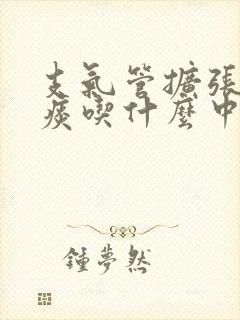 支氣管擴張
痰喫什麼中
鍾夢然